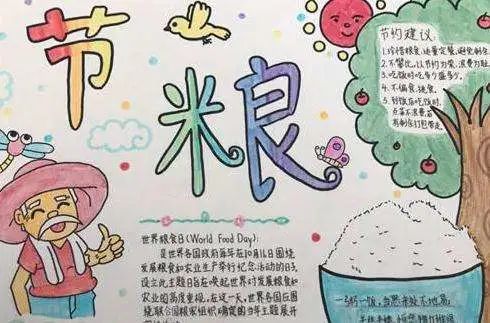 节粮
节约建议:
1.珍惜粮食,适量定餐,避免剩余
2.不攀比,以节约为荣,浪费为耻
3.吃饭时吃多少盛多少。
4.不偏食,挑食。
5.到饭店吃饭时,
点菜不浪费,若
有剩余打包带走。
世界粮食日(World Food Day):
是世界各国政府每年在10月16日围绕
发展粮食和农业生产举行纪念活动的日子,
设立此主题日旨在唤起世界对发展粮食和
农业的高度重视。在这一天,世界各国应围
绕联合国粮农组织确定的当年主题展开
一粥一饭,当思来处不易,